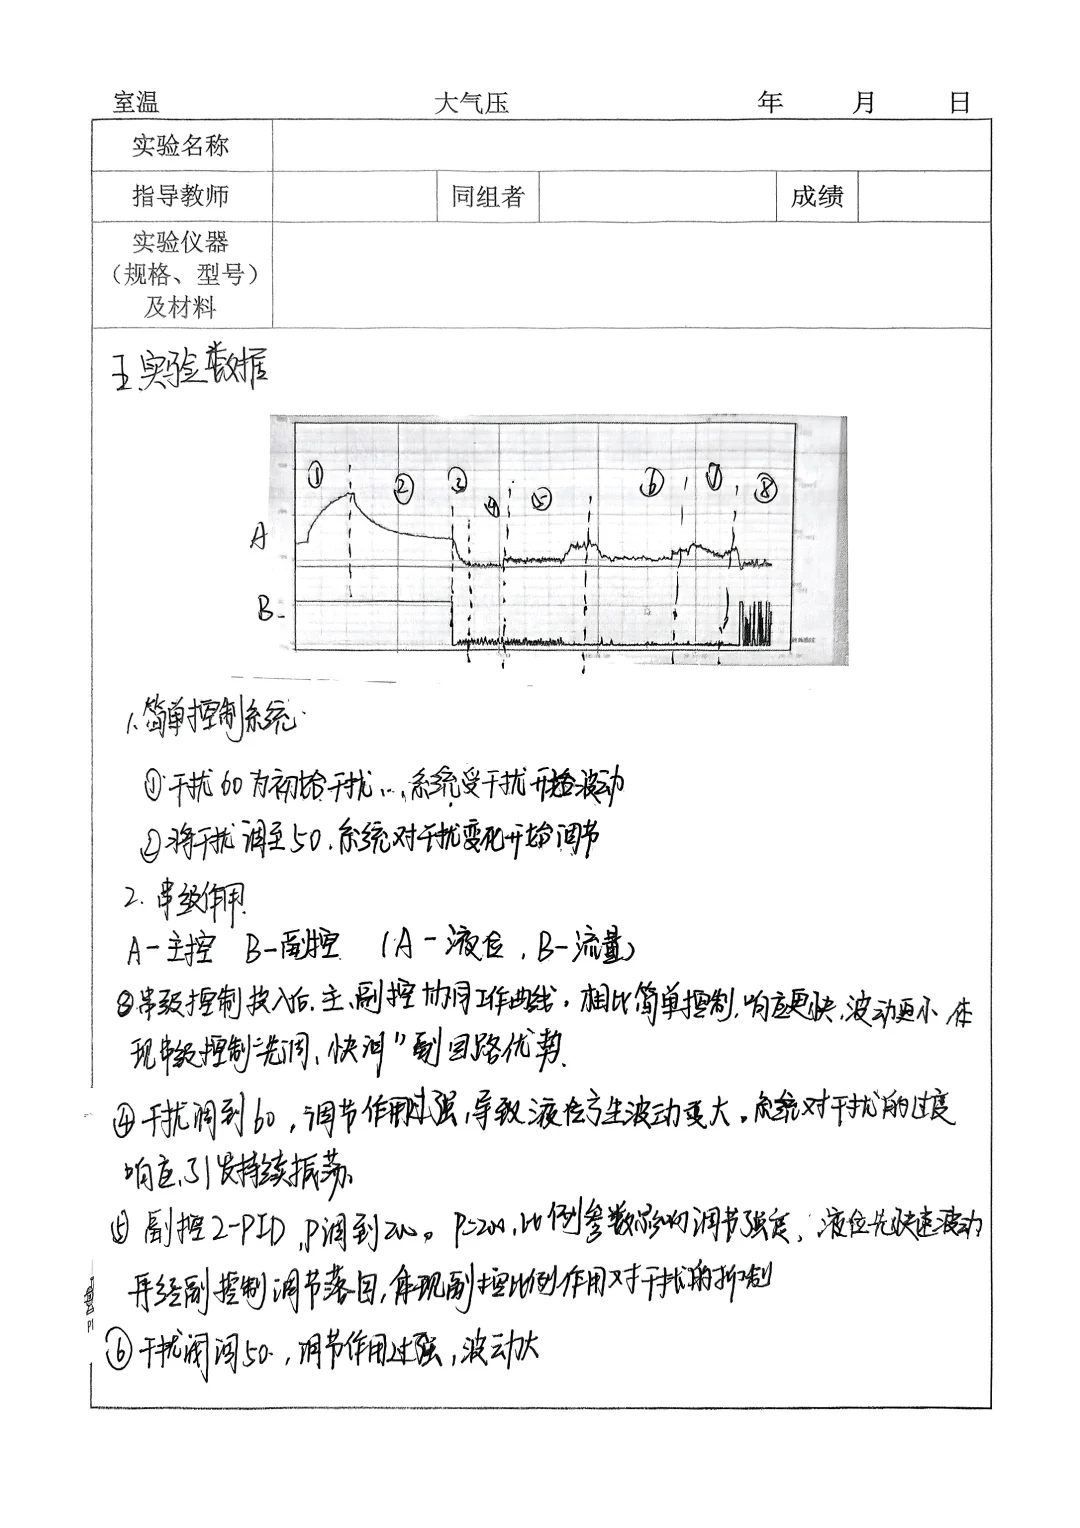 室温 大气压 年 月 日
实验名称
指导教师 同组者 成绩
实验仪器
（规格、型号）
及材料
五.实验数据
① ② ③ ④ ⑤ ⑥ ⑦ ⑧
A
B
1.简单控制系统
①干扰60为初始干扰...,系统受干扰开始波动
②将干扰调至50.系统对干扰变化开始调节
2.串级作用.
A-主控 B-副控 (A-液位,B-流量)
③串级控制投入后.主、副控协同工作曲线.相比简单控制.响应更快,波动更小 体
现串级控制"先调、快调"副回路优势.
④干扰阀到60,调节作用过强,导致液位产生波动变大.系统对干扰的过度
响应,引发持续振荡.
⑤副控2-PID,P调到200。P=200,比例参数影响调节强度,液位先快速波动
再经副控制调节落回,体现副控比例作用对干扰的抑制
⑥干扰阀调50.,调节作用过强,波动大